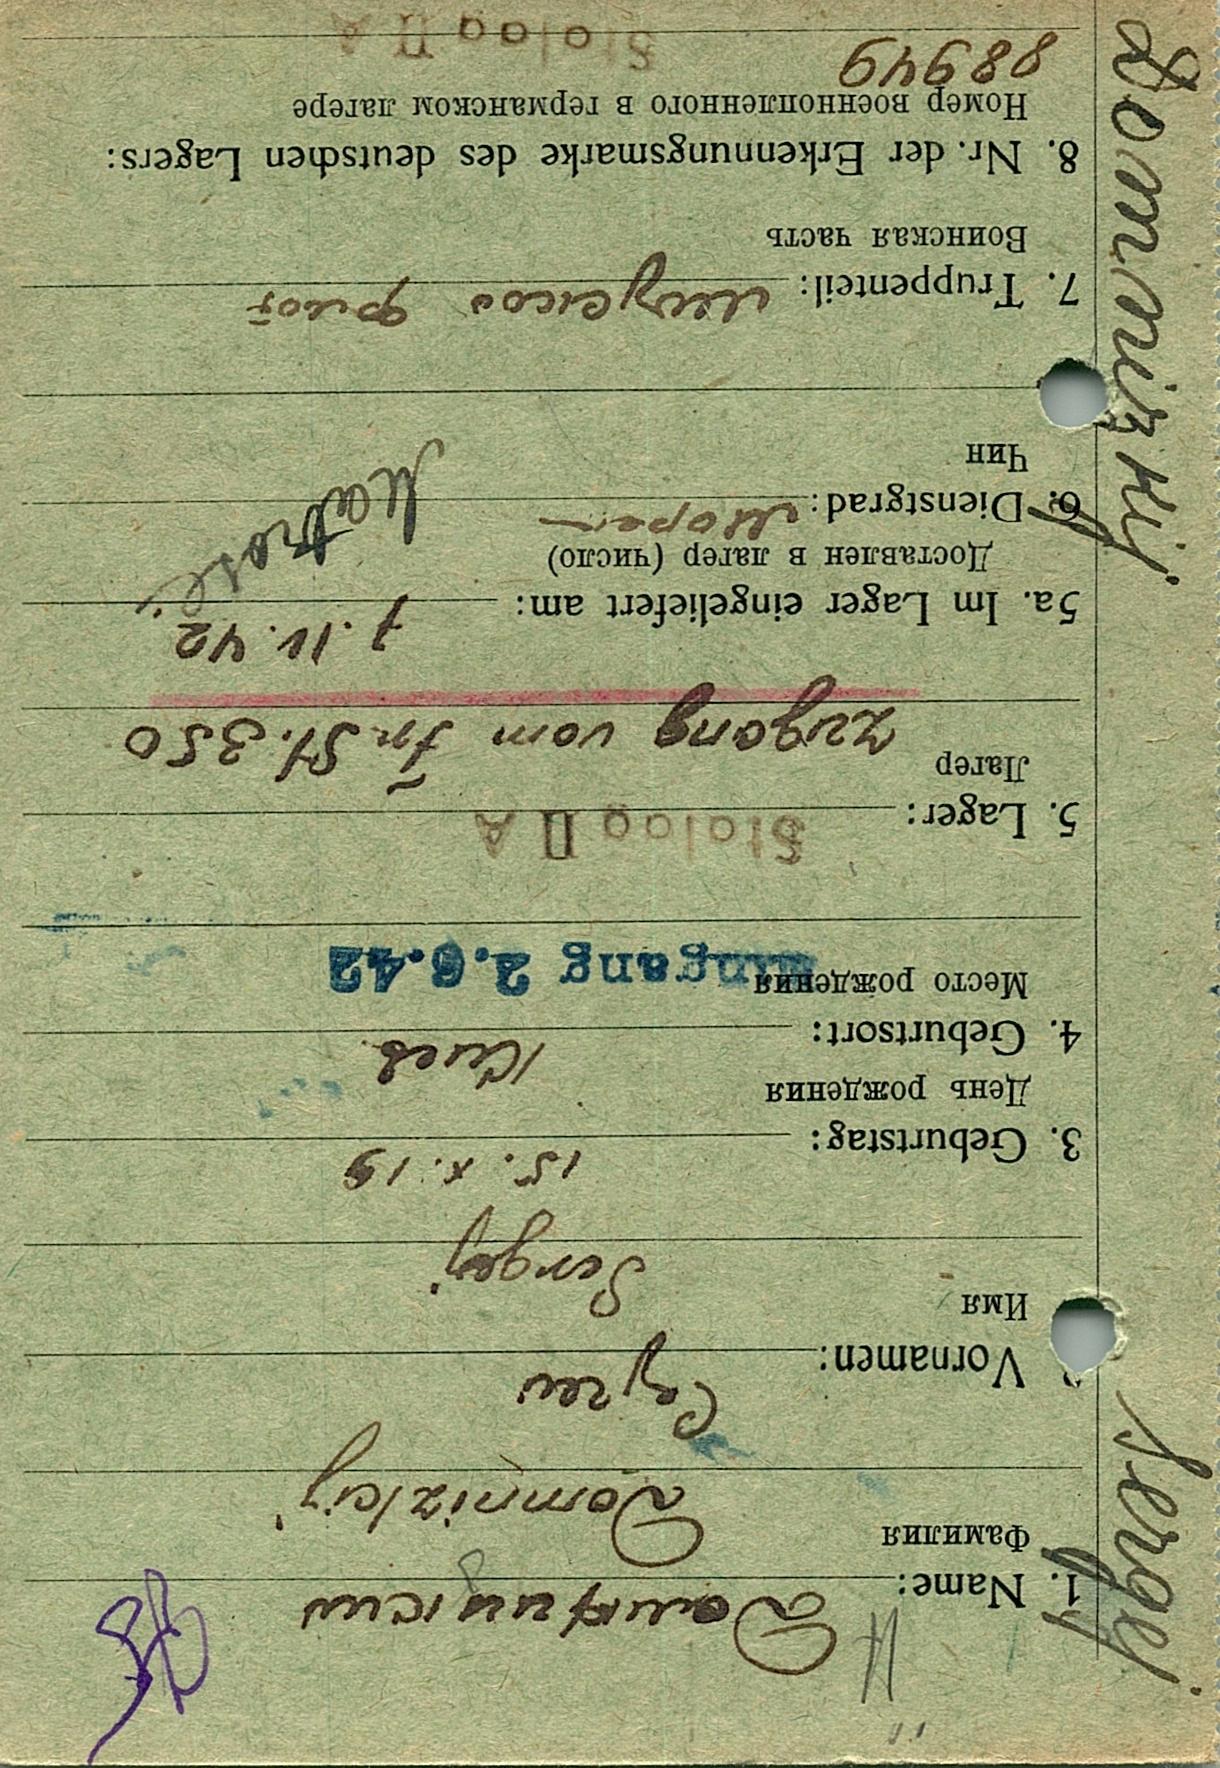 1. Name:
Фамилия
Domnizkij
Vornamen:
Имя
Sergej
3. Geburtstag: 15. X. 19
День рождения
4. Geburtsort: Киев
Место рождения
Eingang 2.6.42
5. Lager: Stalag II A
Лагер
Zugang vom Fr. St. 350
5a. Im Lager eingeliefert am: 7. IV. 42
Доставлен в лагер (число)
6. Dienstgrad: Matrose
Чин
7. Truppenteil: флот
Воинская часть
8. Nr. der Erkennungsmarke des deutschen Lagers:
Номер военнопленного в германском лагере
88949
Stalag II A
Domnizkij Sergej